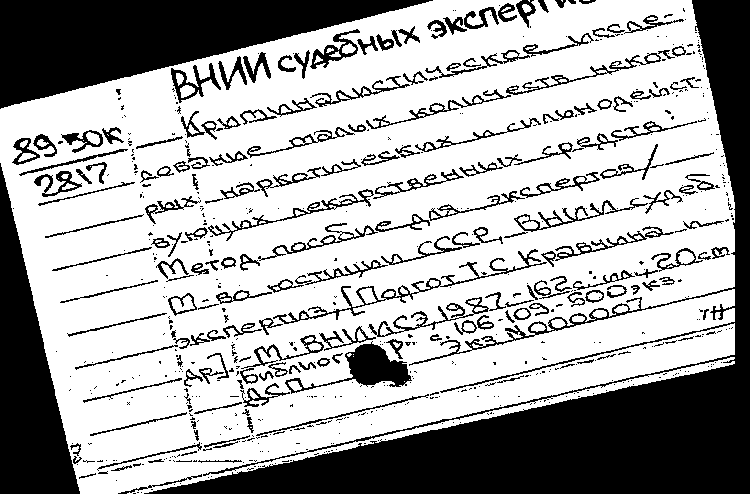 ВНИИ судебных экспертиз
89-50К
2817
Криминалистическое иссле-
дование малых количеств некото-
рых наркотических и сильнодейст-
вующих лекарственных средств:
Метод. пособие для экспертов/
М-во юстиции СССР, ВНИИ судеб.
экспертиз; [Подгот. Т.С. Кравчина и
др.]. -М.: ВНИИСЭ, 1987.-162с.: ил.; 20см
Библиогр.: с. 106-109.-500 экз.
ДСП. Экз N000007
тн